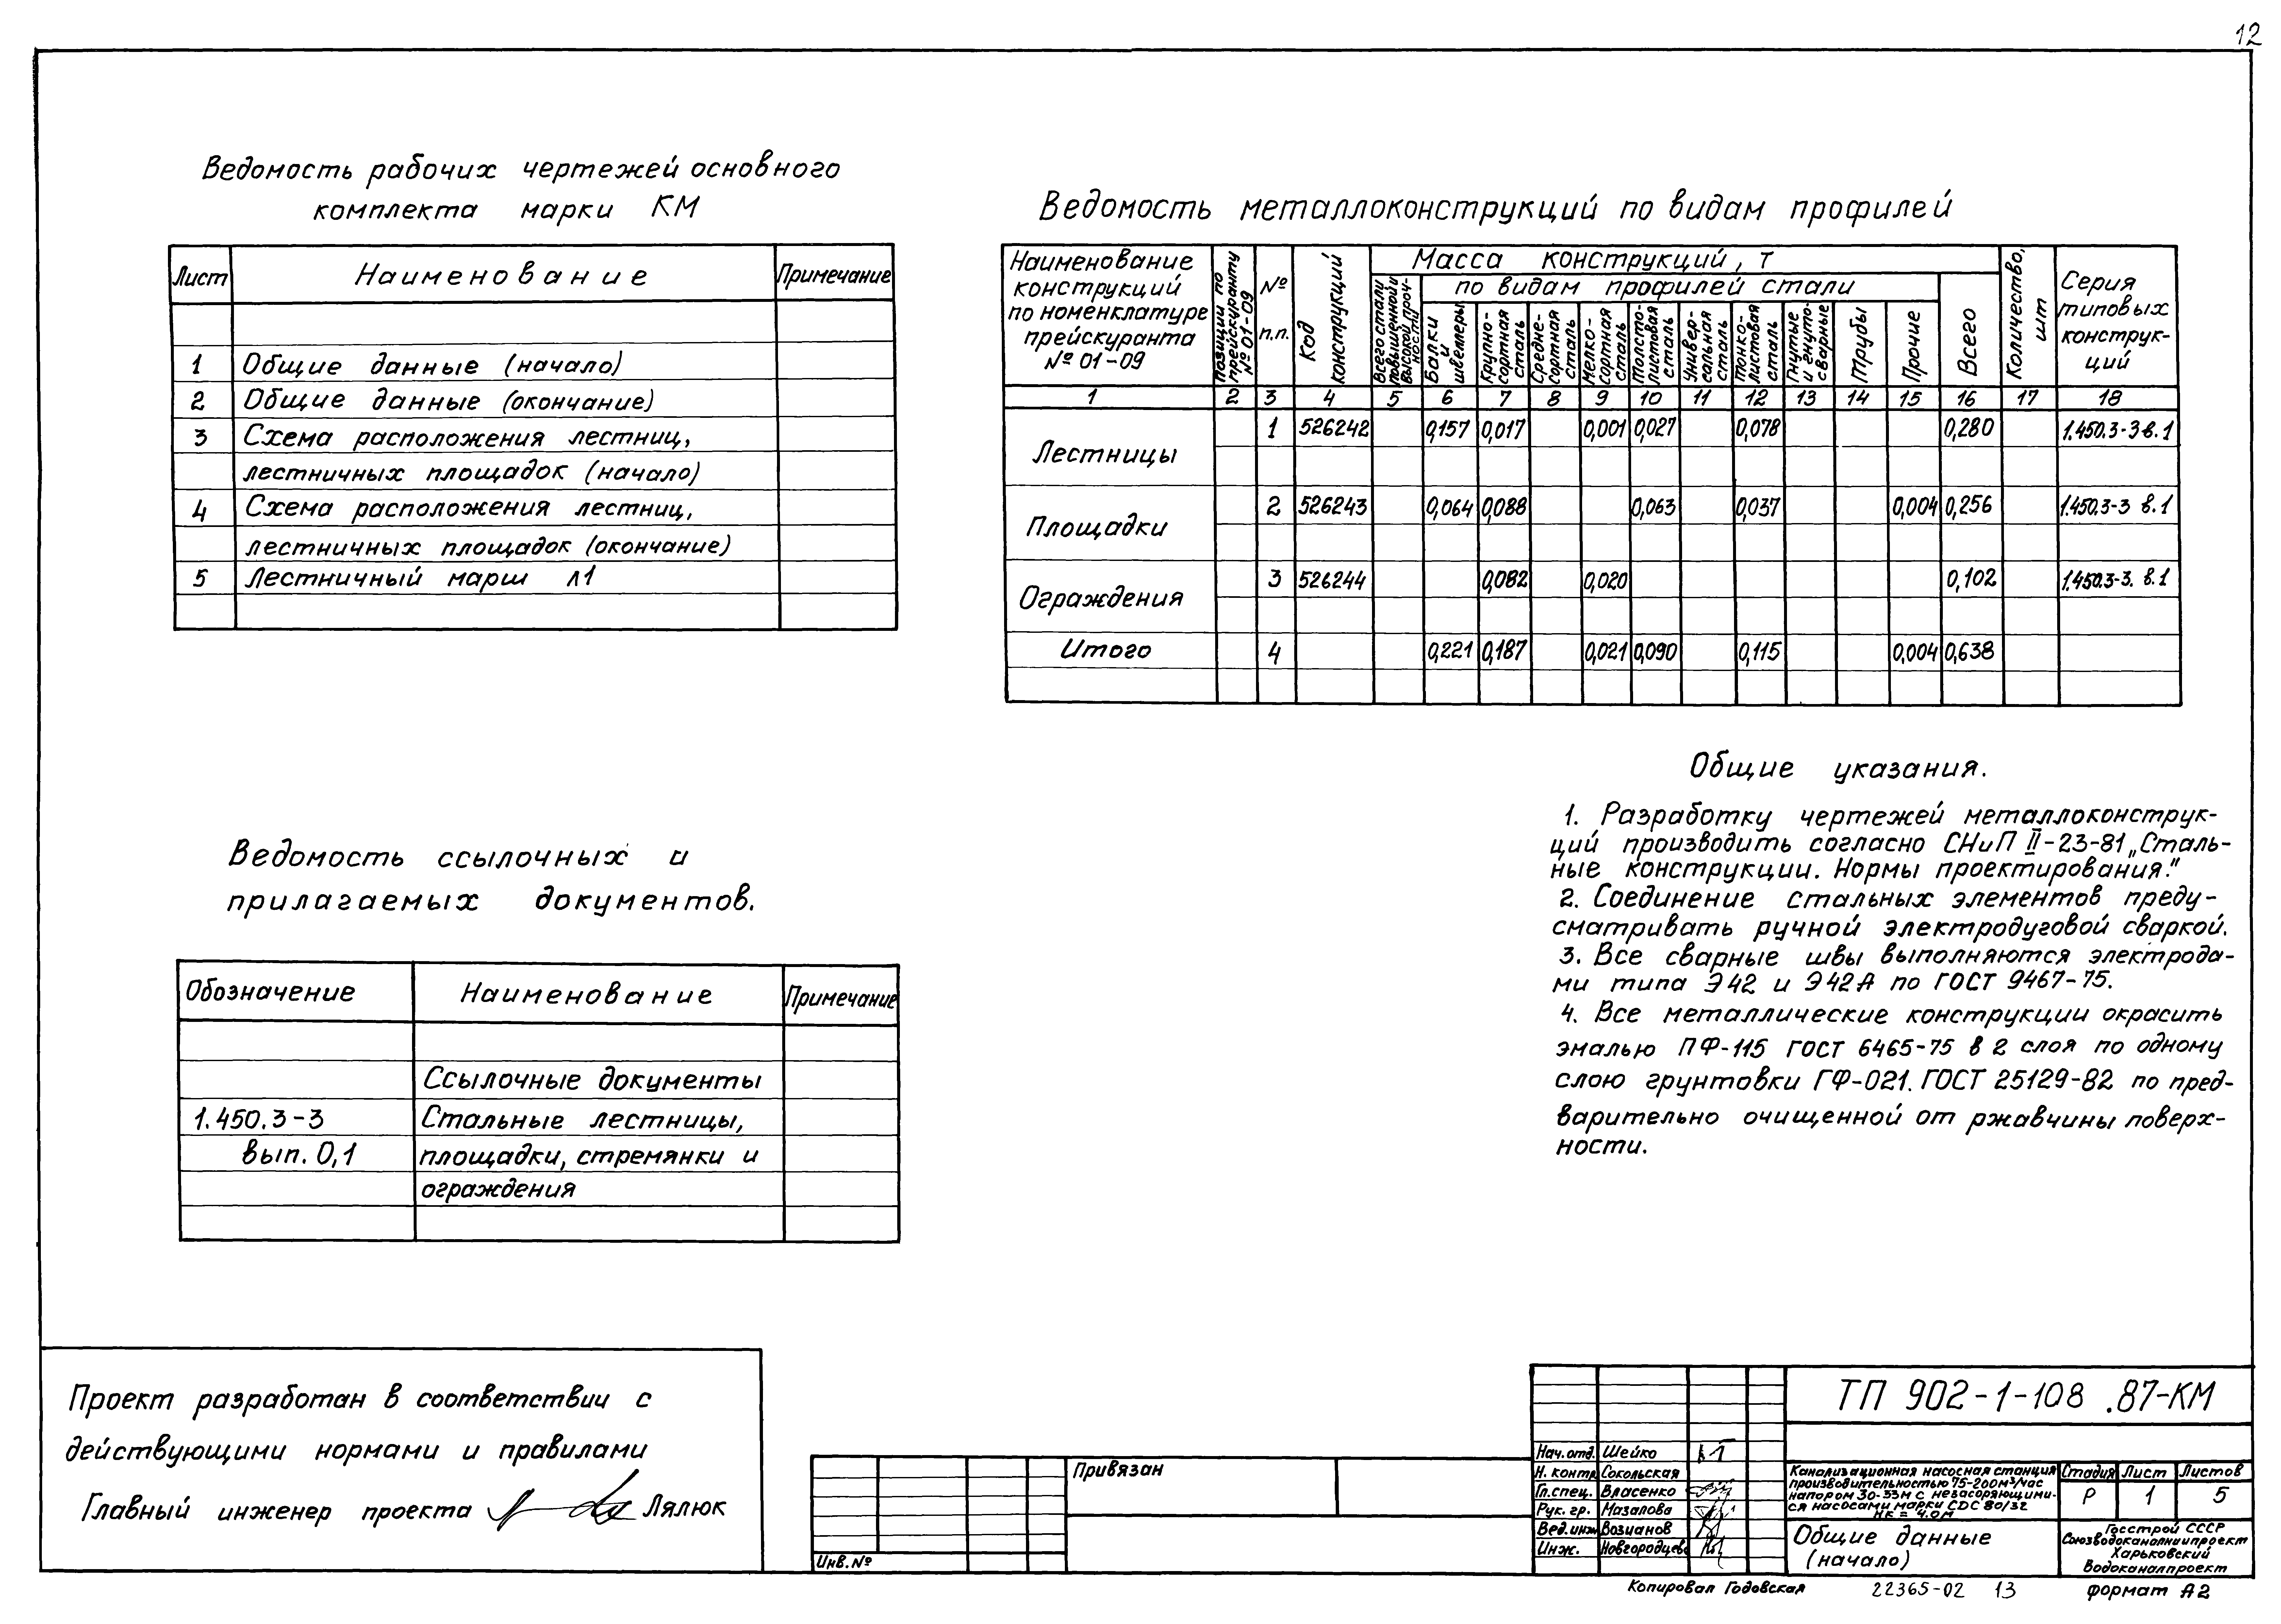 12
Ведомость рабочих чертежей основного
комплекта марки КМ
Лист Наименование Примечание
1 Общие данные (начало)
2 Общие данные (окончание)
3 Схема расположения лестниц,
лестничных площадок (начало)
4 Схема расположения лестниц,
лестничных площадок (окончание)
5 Лестничный марш Л1
Ведомость металлоконструкций по видам профилей
Наименование
конструкций
по номенклатуре
прейскуранта
№ 01-09
Позиции по
прейскуранту
№ 01-09
№
п.п.
Код
конструкций
Масса конструкций, т
Всего стали
повышенной и
высокой проч-
ности
по видам профилей стали
Балки
и
швеллеры
Крупно-
сортная
сталь
Средне-
сортная
сталь
Мелко-
сортная
сталь
Толсто-
листовая
сталь
Универ-
сальная
сталь
Тонко-
листовая
сталь
Гнутые
и гнуто-
сварные
Трубы
Прочие
Всего
Количество,
шт
Серия
типовых
конструк-
ций
1 2 3 4 5 6 7 8 9 10 11 12 13 14 15 16 17 18
Лестницы 1 526242 0,157 0,017 0,001 0,027 0,078 0,280 1.450.3-3 в.1
Площадки 2 526243 0,064 0,088 0,063 0,037 0,004 0,256 1.450.3-3 в.1
Ограждения 3 526244 0,082 0,020 0,102 1.450.3-3. в.1
Итого 4 0,221 0,187 0,021 0,090 0,115 0,004 0,638
Ведомость ссылочных и
прилагаемых документов.
Обозначение Наименование Примечание
Ссылочные документы
1.450.3-3 Стальные лестницы,
вып. 0,1 площадки, стремянки и
ограждения
Общие указания.
1. Разработку чертежей металлоконструк-
ций производить согласно СНиП II-23-81 „Сталь-
ные конструкции. Нормы проектирования."
2. Соединение стальных элементов преду-
сматривать ручной электродуговой сваркой.
3. Все сварные швы выполняются электрода-
ми типа Э42 и Э42А по ГОСТ 9467-75.
4. Все металлические конструкции окрасить
эмалью ПФ-115 ГОСТ 6465-75 в 2 слоя по одному
слою грунтовки ГФ-021. ГОСТ 25129-82 по пред-
варительно очищенной от ржавчины поверх-
ности.
Проект разработан в соответствии с
действующими нормами и правилами
Главный инженер проекта Лялюк
Привязан
Инв. №
Нач. отд. Шейко
Н. контр. Сокольская
Гл. спец. Власенко
Рук. гр. Мазалова
Вед. инж. Возианов
Инж. Новгородцева
ТП 902-1-108 .87-КМ
Канализационная насосная станция
производительностью 75-200м³/час
напором 30-33м с незасоряющими-
ся насосами марки СDС 80/32
Нк = 4.0м
Стадия Лист Листов
Р 1 5
Общие данные
(начало)
Госстрой СССР
Союзводоканалниипроект
Харьковский
Водоканалпроект
Копировал Годовская 22365-02 13 формат А2